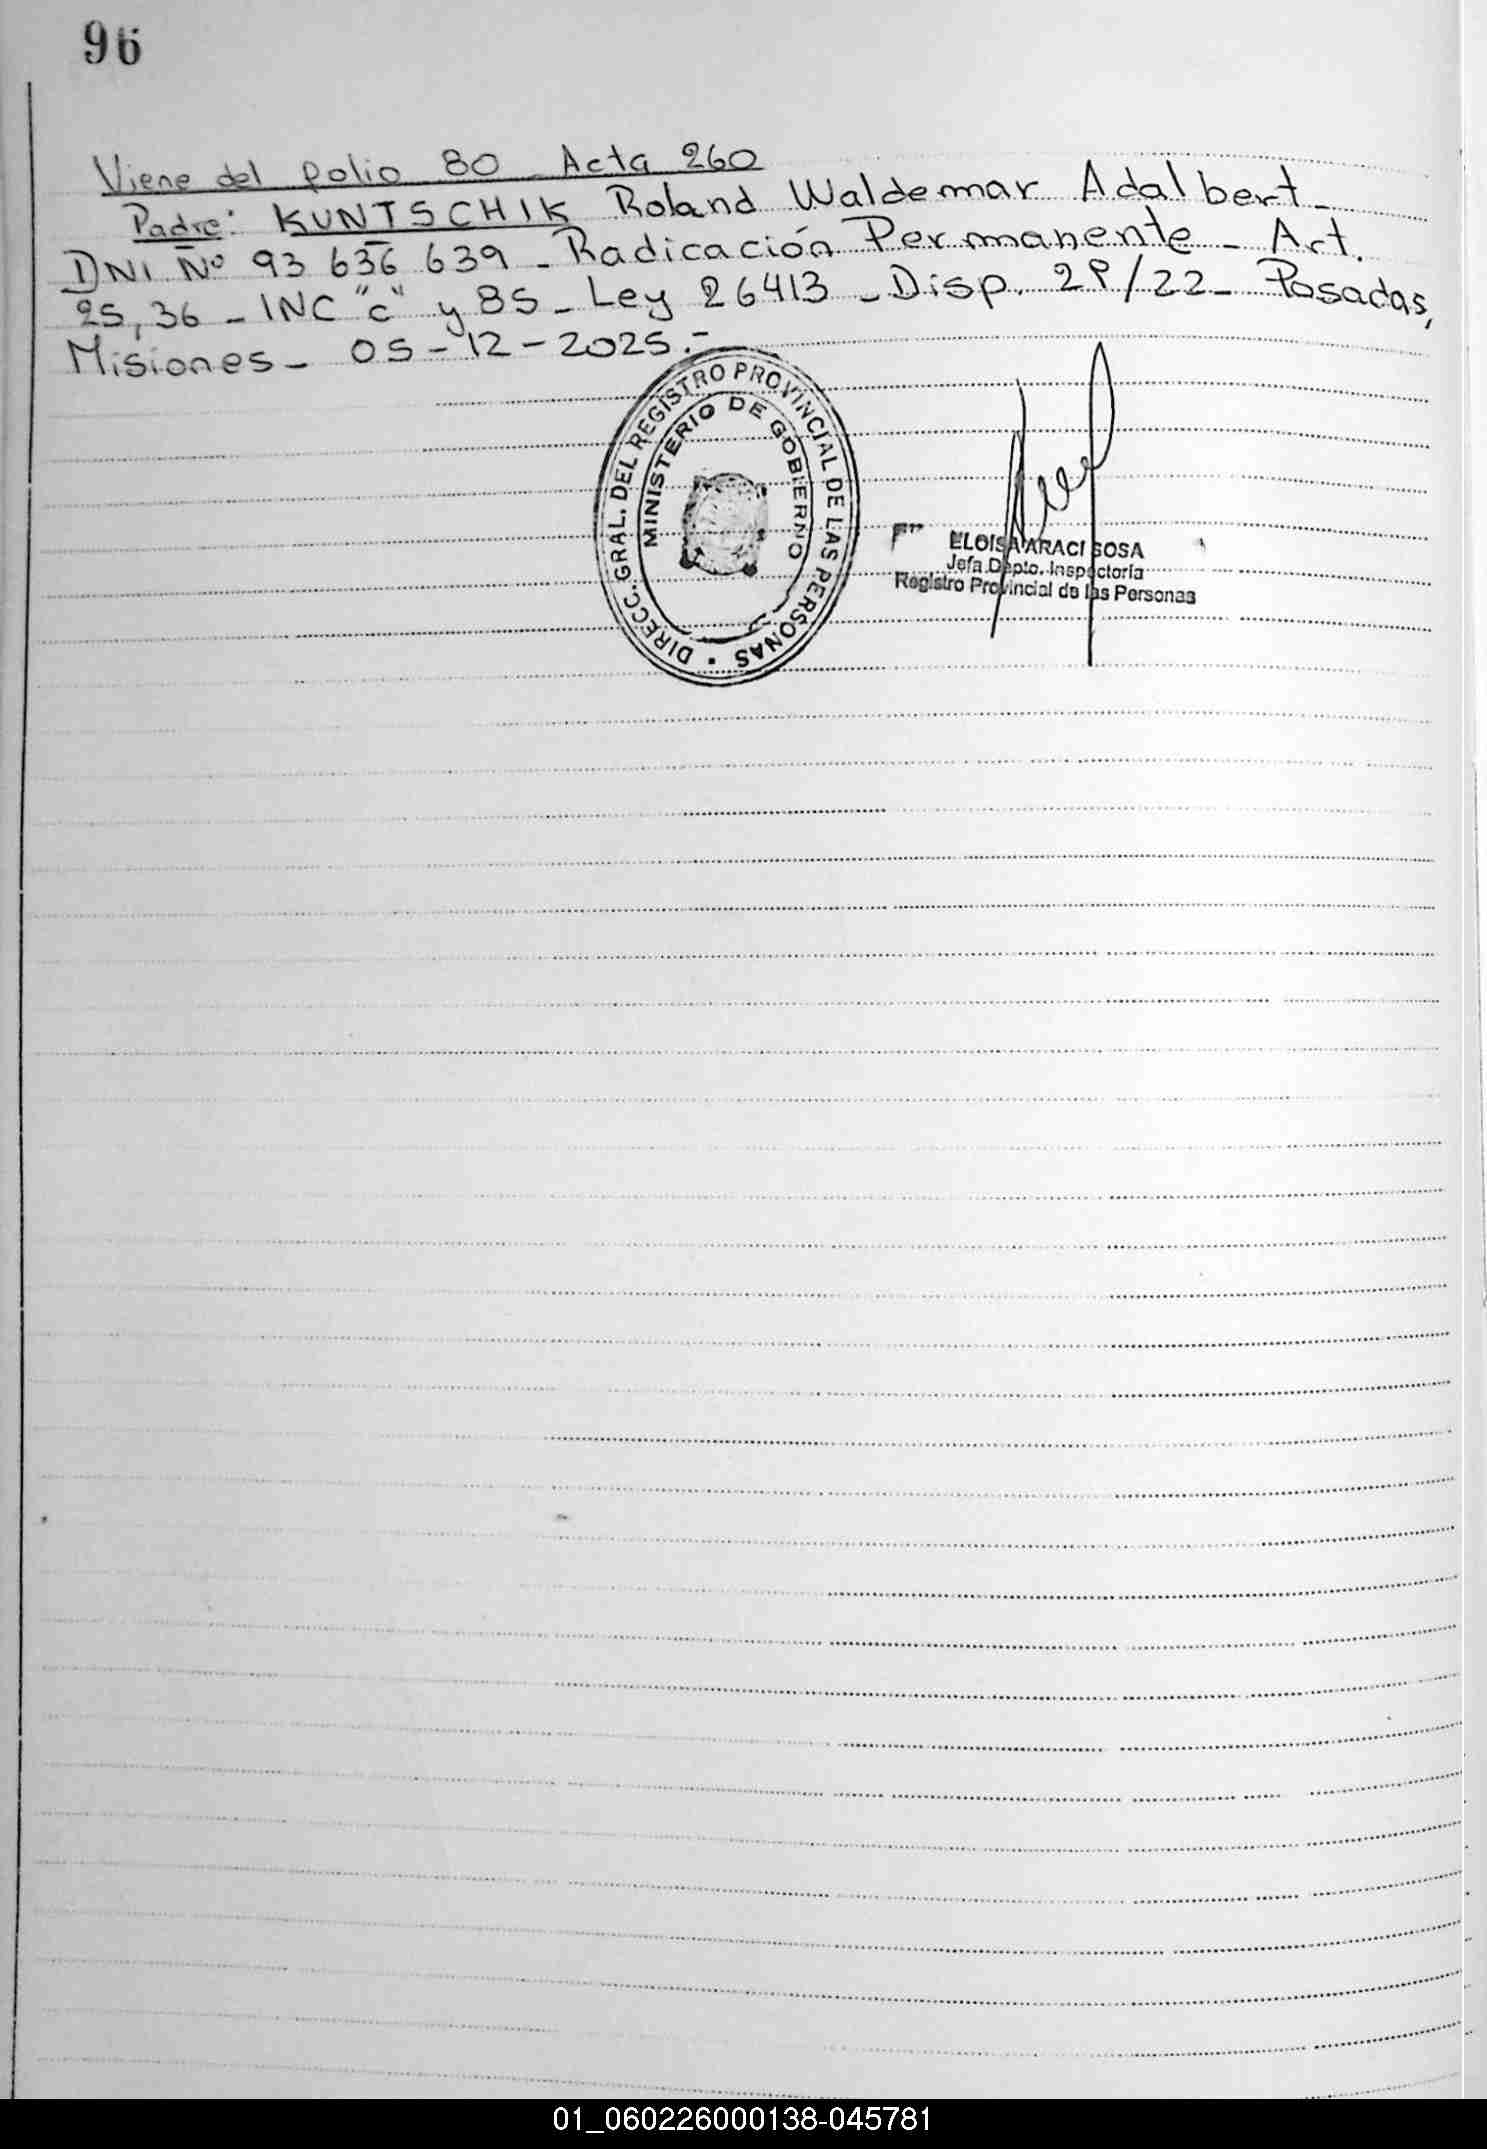 96
Viene del folio 80 - Acta 260
Padre: KUNTSCHIK Roland Waldemar Adalbert -
DNI Nº 93 636 639 - Radicación Permanente - Art.
25, 36 - INC "c" y 85 - Ley 26413 - Disp. 29/22 - Posadas,
Misiones - 05-12-2025.-
DIRECC. GRAL. DEL REGISTRO PROVINCIAL DE LAS PERSONAS
MINISTERIO DE GOBIERNO
ELOISA ARACI SOSA
Jefa Dpto. Inspectoría
Registro Provincial de las Personas
01_060226000138-045781